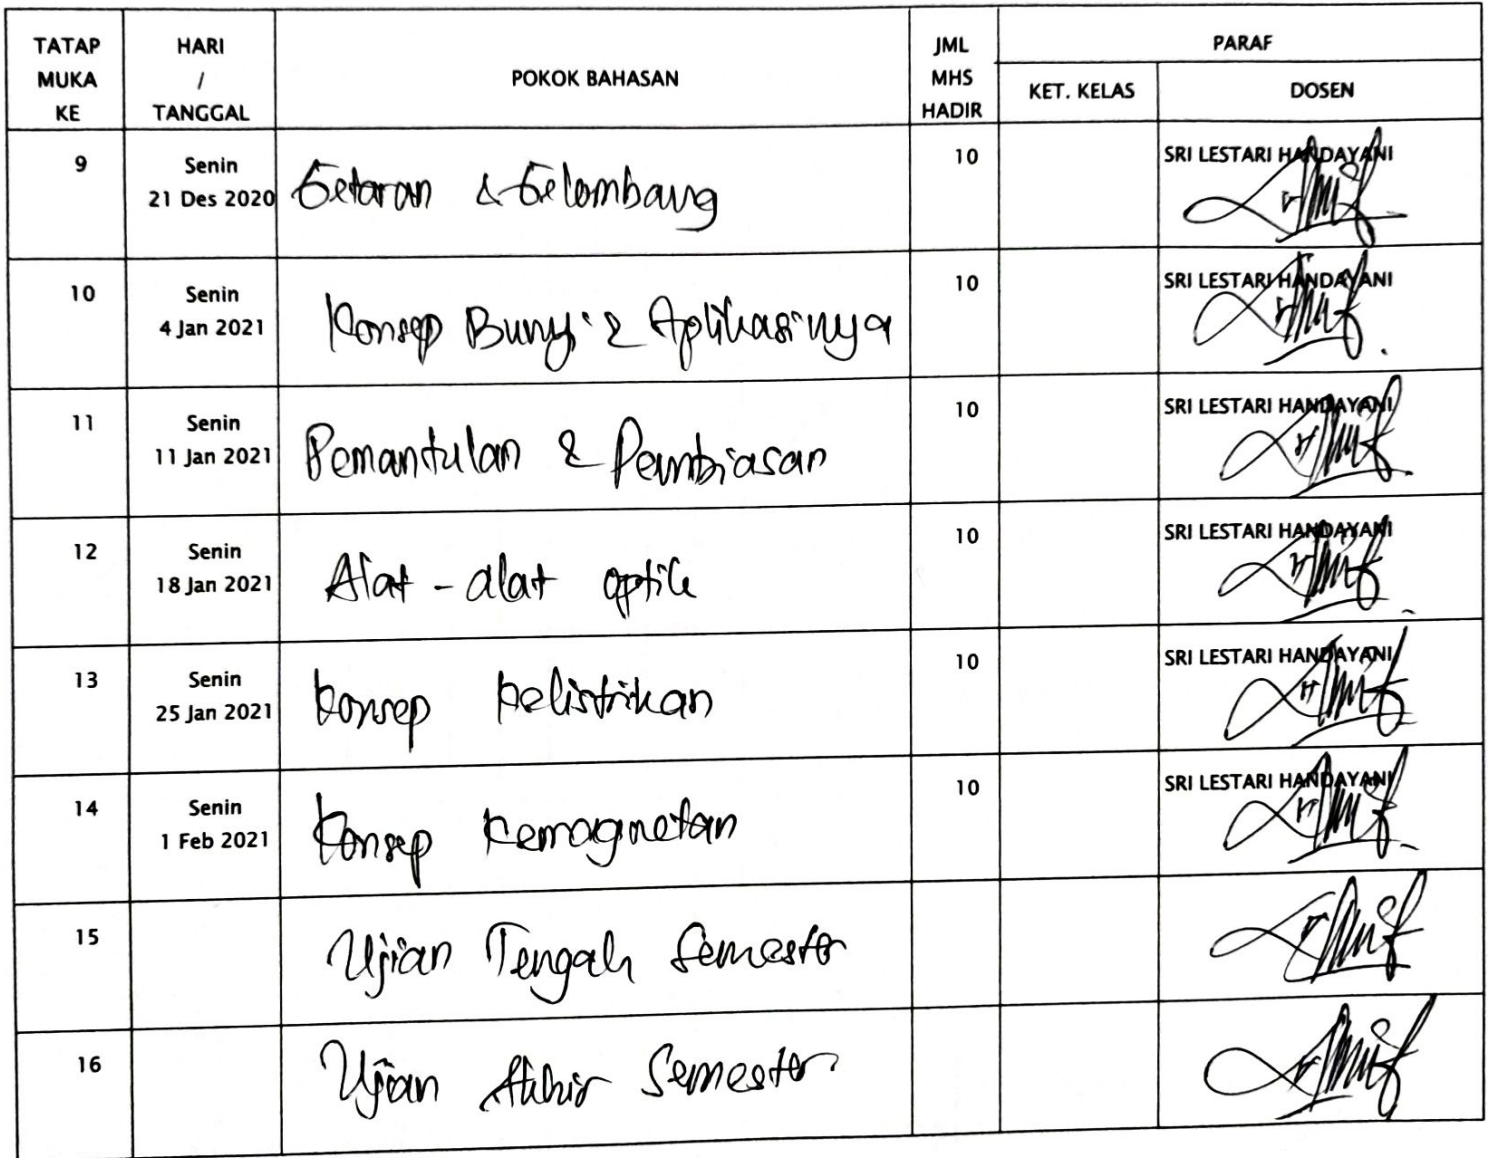 TATAP MUKA KE
HARI / TANGGAL
POKOK BAHASAN
JML MHS HADIR
PARAF
KET. KELAS
DOSEN
9
Senin
21 Des 2020
Getaran & Gelombang
10
SRI LESTARI HANDAYANI
10
Senin
4 Jan 2021
Konsep Bunyi & Aplikasinya
10
SRI LESTARI HANDAYANI
11
Senin
11 Jan 2021
Pemantulan & Pembiasan
10
SRI LESTARI HANDAYANI
12
Senin
18 Jan 2021
Alat - alat optik
10
SRI LESTARI HANDAYANI
13
Senin
25 Jan 2021
Konsep kelistrikan
10
SRI LESTARI HANDAYANI
14
Senin
1 Feb 2021
Konsep kemagnetan
10
SRI LESTARI HANDAYANI
15
Ujian Tengah Semester
16
Ujian Akhir Semester